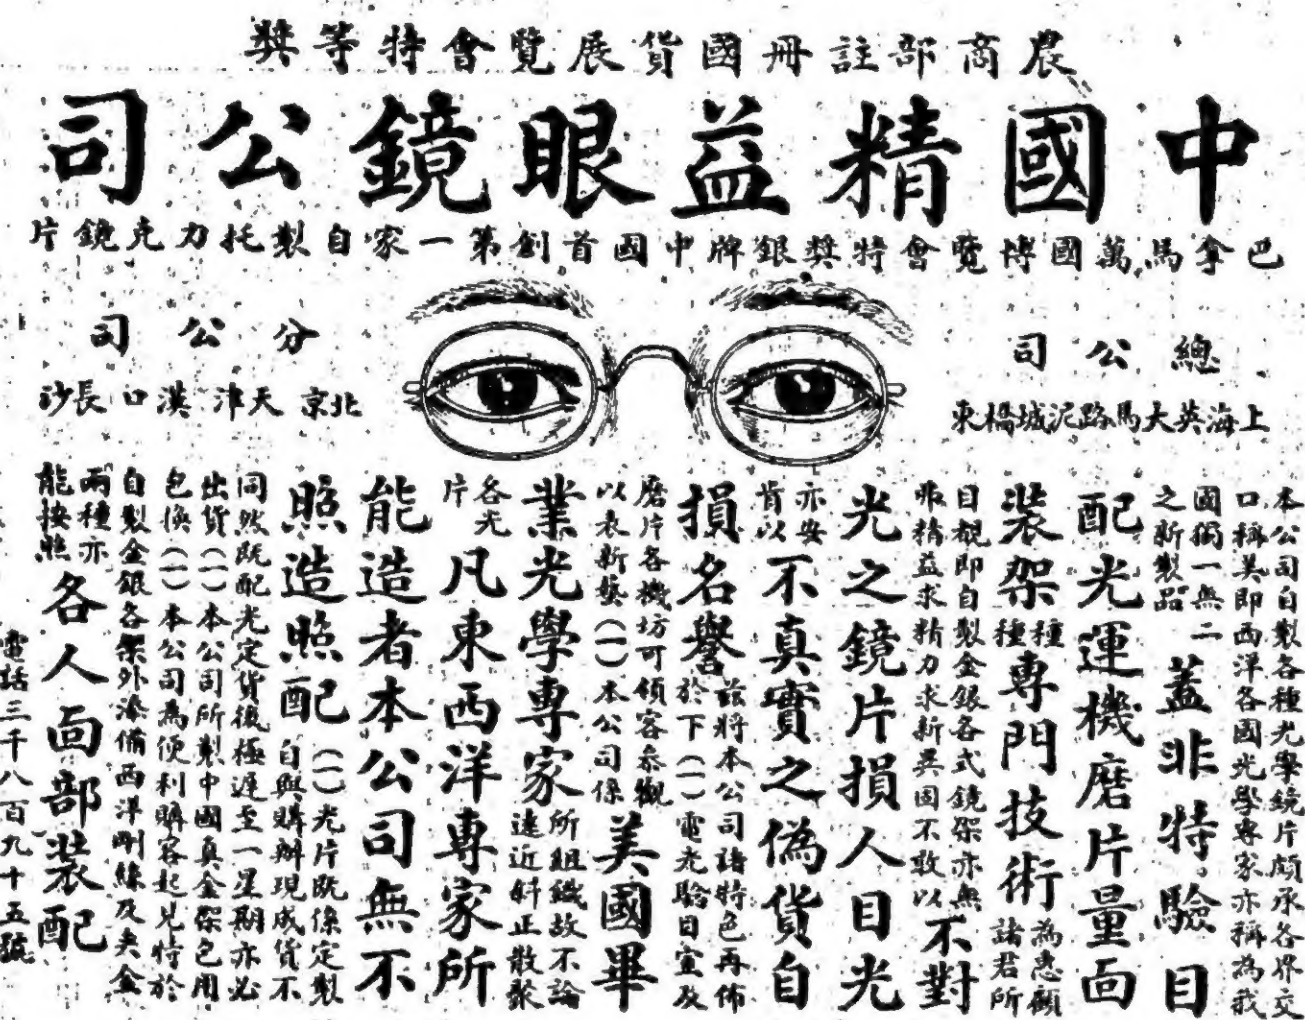 農商部註冊國貨展覽會特等獎
中國精益眼鏡公司
巴拿馬萬國博覽會特獎銀牌中國首創第一家自製托力克鏡片
總公司
上海英大馬路泥城橋東
分公司
北京 天津 漢口 長沙
本公司自製各種光學鏡片頗承各界交
口稱美即西洋各國光學專家亦稱為我
國獨一無二
之新製品
蓋非特驗目
配光運機磨片量面
裝架
種種
專門技術
為惠顧
諸君所
目覩即自製金銀各式鏡架亦無
非精益求精力求新異固不敢以
不對
光之鏡片損人目光
亦安
肯以
不真實之偽貨自
損名譽
茲將本公司諸特色再佈
於下(一)電光驗目室及
磨片各機坊可領客參觀
以表新藝(一)本公司係
美國畢
業光學專家
所組織故不論
遠近斜正散聚
各光
片
凡東西洋專家所
能造者本公司無不
照造照配
(一)光片既係定製
自與購辦現成貨不
同然既配光定貨後極遲至一星期亦必
出貨(一)本公司所製中國真金架包用
包換(一)本公司為便利購客起見特於
自製金銀各架外添備西洋剛絲及夾金
兩種亦
能按照
各人面部裝配
電話三千八百九十五號